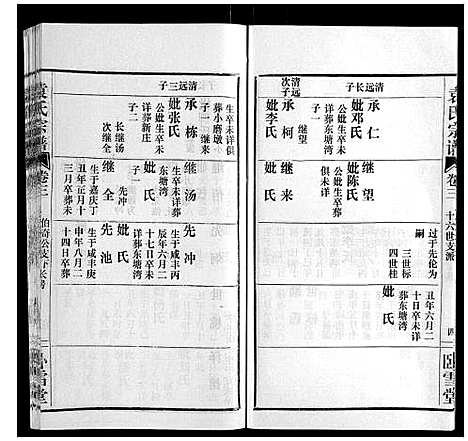 袁氏宗谱
卷三
十六世支派
四
卧雪堂
清远长子
承仁
妣邓氏
公妣葬东塘湾
子一
继望
清远次子
承柯
妣李氏
继来
继望
妣陈氏
俱未详
过于先伦为
嗣
三世标
四世桂
妣氏
丑年六月二
十日卒未详
葬东塘湾
清远三子
承栋
妣张氏
生卒未详俱
葬小磨墩
子一
继来
生卒未详
公妣
详葬新庄
子二
长继汤
次继全
继汤
妣氏
生卒未详
东塘湾
子二
先冲
先池
继全
生于嘉庆丁
丑年正月十
三月卒葬未
先冲
妣氏
生于咸丰丙
辰年六月二
十七日卒未
详葬东塘湾
先池
生于咸丰庚
申年八月二
十四日卒葬
袁氏宗谱
卷三
卧雪堂